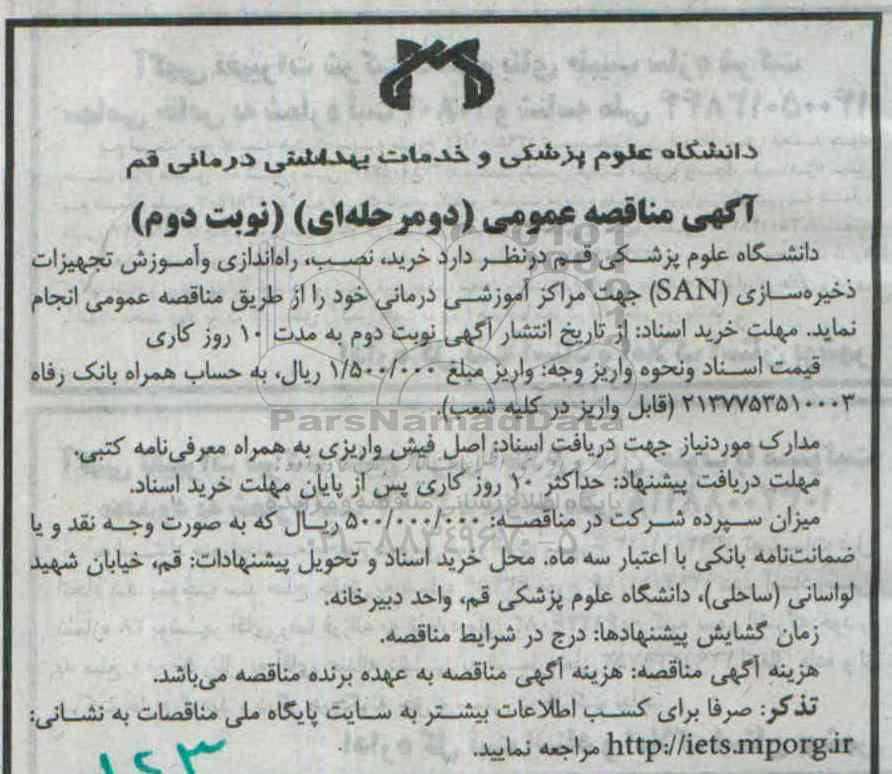 دانشگاه علوم پزشکی و خدمات بهداشتی درمانی قم
آگهی مناقصه عمومی (دومرحله‌ای) (نوبت دوم)
دانشگاه علوم پزشکی قم درنظر دارد خرید، نصب، راه‌اندازی وآموزش تجهیزات
ذخیره‌سازی (SAN) جهت مراکز آموزشی درمانی خود را از طریق مناقصه عمومی انجام
نماید. مهلت خرید اسناد: از تاریخ انتشار آگهی نوبت دوم به مدت ۱۰ روز کاری
قیمت اسناد ونحوه واریز وجه: واریز مبلغ ۱/۵۰۰/۰۰۰ ریال، به حساب همراه بانک رفاه
۲۱۳۷۷۵۳۵۱۰۰۰۳ (قابل واریز در کلیه شعب).
ParsNamadData
مدارک موردنیاز جهت دریافت اسناد: اصل فیش واریزی به همراه معرفی‌نامه کتبی.
مهلت دریافت پیشنهاد: حداکثر ۱۰ روز کاری پس از پایان مهلت خرید اسناد.
میزان سپرده شرکت در مناقصه: ۵۰۰/۰۰۰/۰۰۰ ریال که به صورت وجه نقد و یا
۰۲۱-۸۸۳۴۹۶۷۰-۵
ضمانت‌نامه بانکی با اعتبار سه ماه. محل خرید اسناد و تحویل پیشنهادات: قم، خیابان شهید
لواسانی (ساحلی)، دانشگاه علوم پزشکی قم، واحد دبیرخانه.
زمان گشایش پیشنهادها: درج در شرایط مناقصه.
هزینه آگهی مناقصه: هزینه آگهی مناقصه به عهده برنده مناقصه می‌باشد.
تذکر: صرفا برای کسب اطلاعات بیشتر به سایت پایگاه ملی مناقصات به نشانی:
http://iets.mporg.ir مراجعه نمایید.